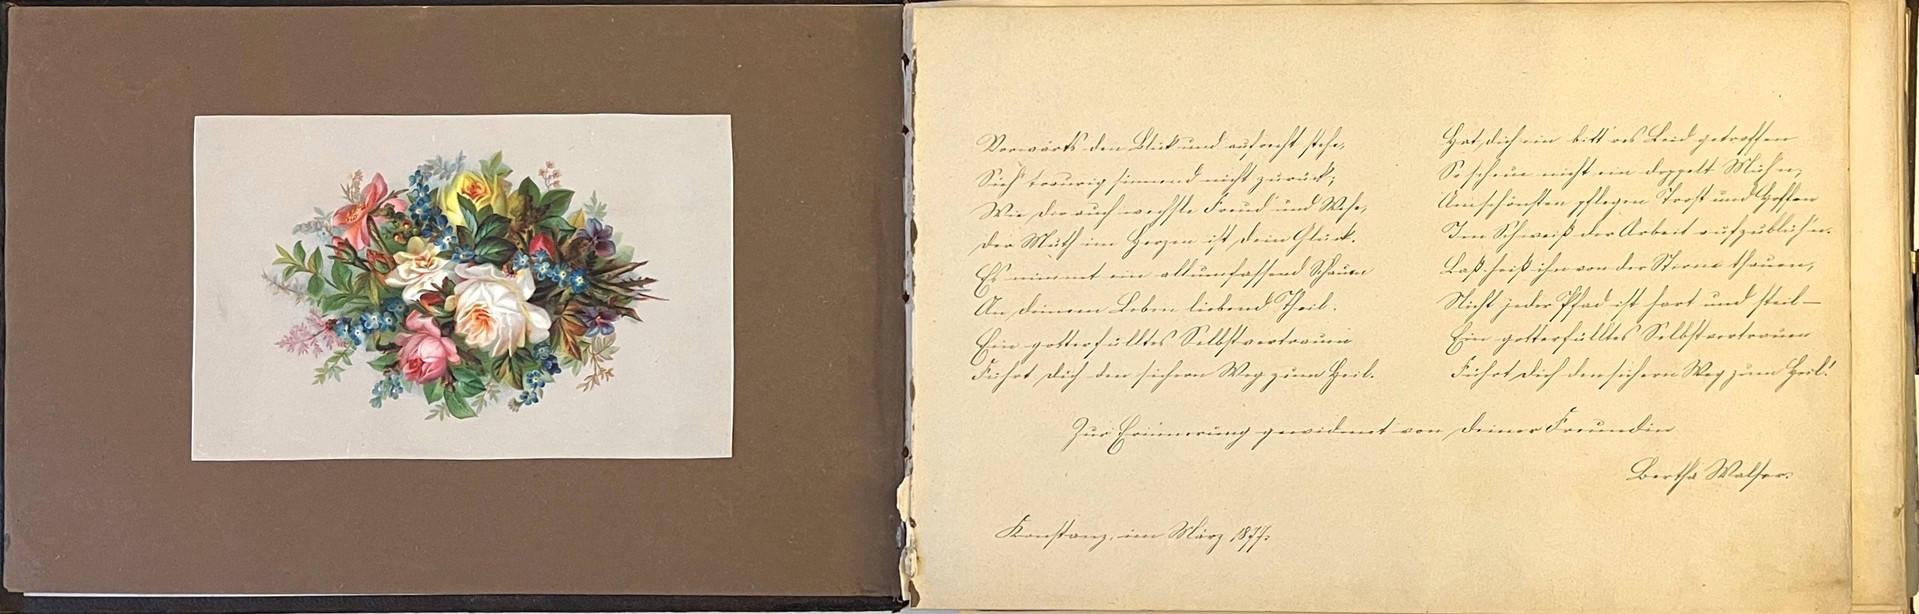 Vorwärts den Blick und aufrecht stehe,
Sieh' traurig sinnend nicht zurück;
Wie dir auch wechsle Freud und Wehe,
Der Muth im Herzen ist dein Glück.
Es nimmt ein allumfassend Schauen
An deinem Leben liebend Theil.
Ein gotterfülltes Selbstvertrauen
Führt dich den sichern Weg zum Heil.
Hat dich ein bitt'res Leid getroffen
So scheue nicht ein doppelt Müh'n,
Am schönsten pflegen Trost und Hoffen
Im Schweiß der Arbeit aufzublüh'n.
Laß heiß ihn von der Stirne thauen,
Nicht jeder Pfad ist hart und steil —
Ein gotterfülltes Selbstvertrauen
Führt dich den sichern Weg zum Heil!
Zur Erinnerung gewidmet von Deiner Freundin
Bertha Walser.
Konstanz, im März 1877.